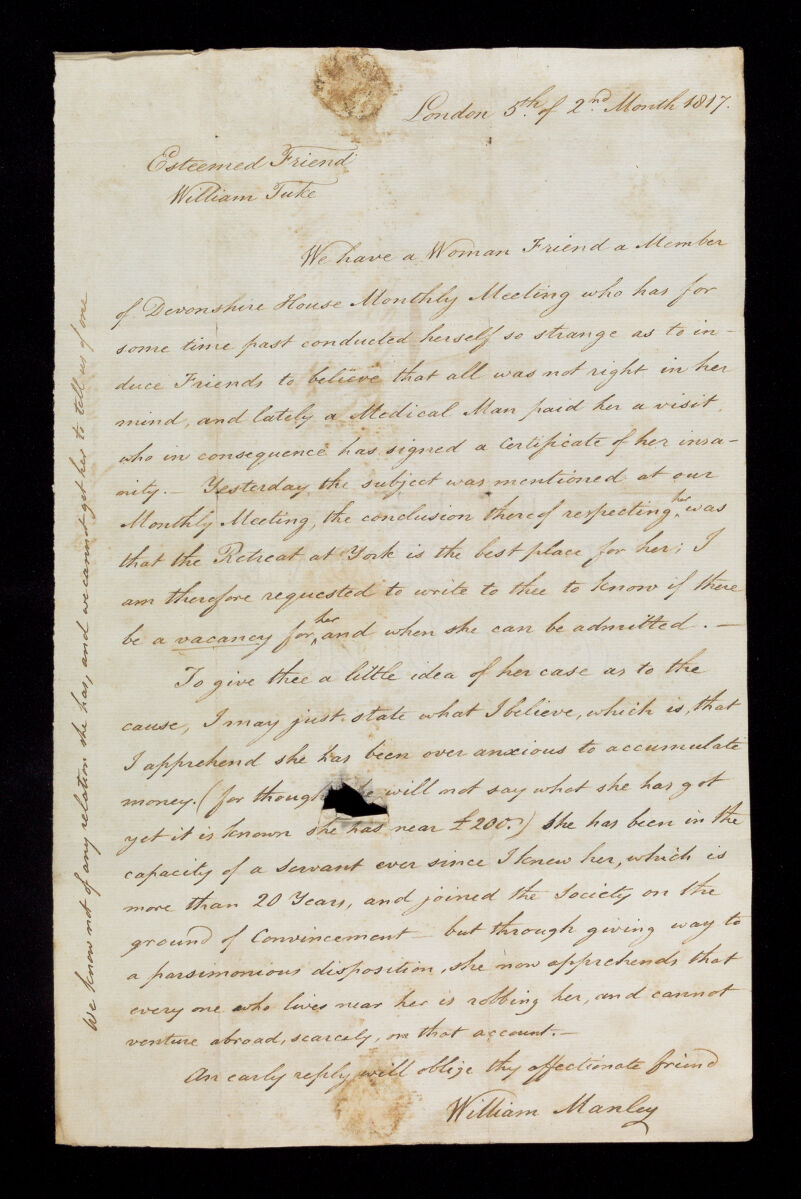 London 5th. of 2nd. Month 1817.
Esteemed Friend
William Tuke
We have a Woman Friend a Member
of Devonshire House Monthly Meeting who has for
some time past conducted herself so strange as to in-
duce Friends to believe that all was not right in her
mind, and lately a Medical Man paid her a visit,
who in consequence has signed a Certificate of her insa-
nity. - Yesterday, the subject was mentioned at our
Monthly Meeting, the conclusion thereof respecting her was
that the Retreat at York is the best place for her; I
am therefore requested to write to thee to know if there
be a vacancy for her and when she can be admitted. -
To give thee a little idea of her case as to the
cause, I may just state what I believe, which is, that
I apprehend she has been over anxious to accumulate
money. (for though will not say what she has got
yet it is known she has near £200.) She has been in the
capacity of a Servant ever since I knew her, which is
more than 20 Years, and joined the Society on the
ground of Convincement - but through giving way to
a parsimonious disposition, she now apprehends that
every one who lives near her is robbing her, and cannot
venture abroad, scarcely, on that account. -
An early reply will oblige thy affectionate friend
William Manley
We know not of any relation she has, and we cannot get her to tell us of one